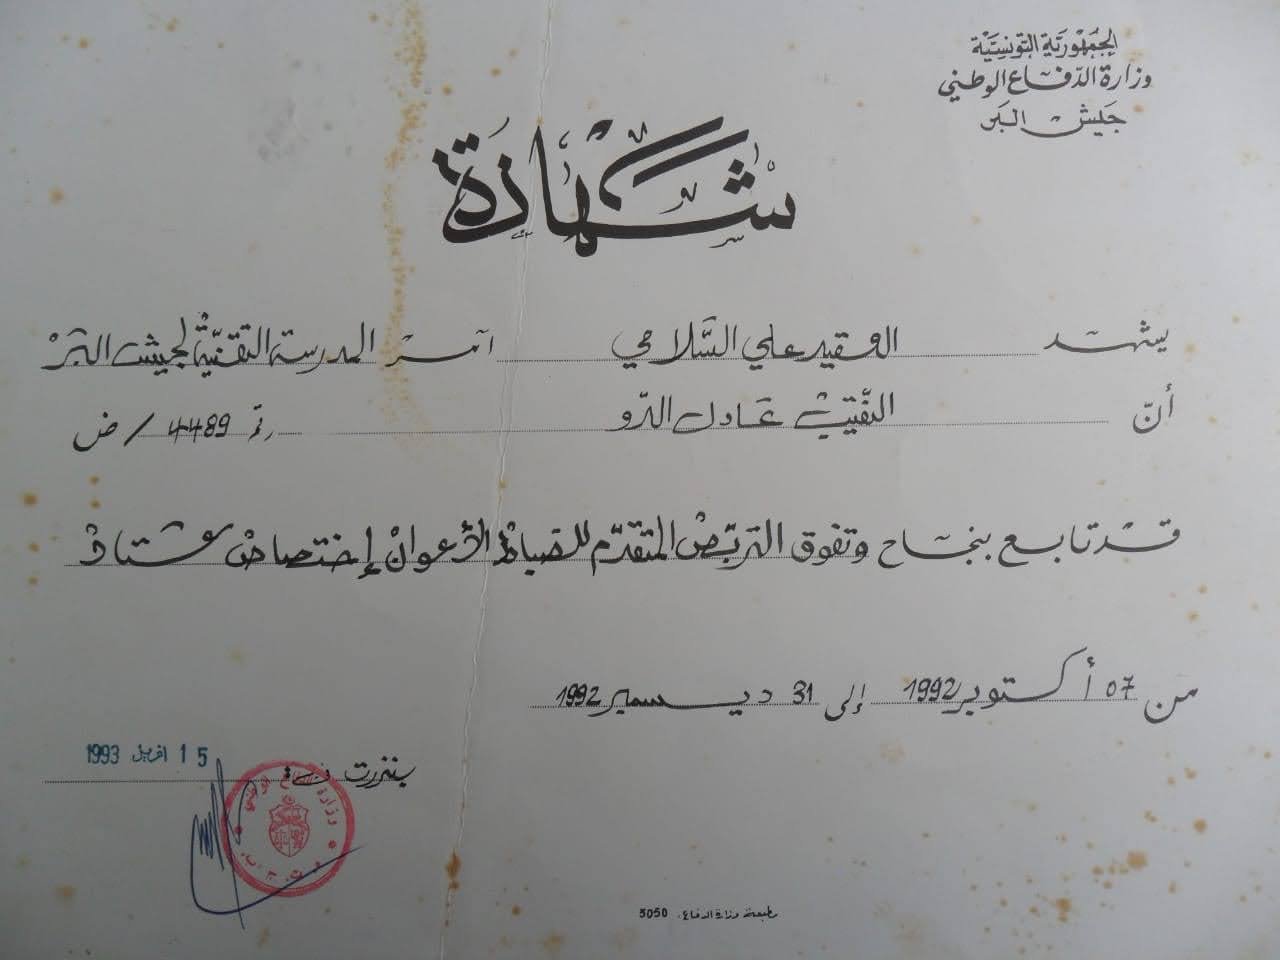 الجُمْهُوريَّة التونسِيَّة
وزارة الدّفاع الوطني
جَيش البَر
شَهَادَة
يشهد العقيد علي السَّلامي آمر المدرسة التقنيّة لجيش البَرّ
أنّ النّقيب عادل الدّو رقم 4489 / ض
قد تابع بنجاح وتفوق التربّص المتقدّم للضباط الأعوان إختصاص عتاد
من 07 أكتوبر 1992 إلى 31 ديسمبر 1992
بنزرت في 15 افريل 1993
وزارة الدفاع الوطني
مطبعة وزارة الدفاع. 3050